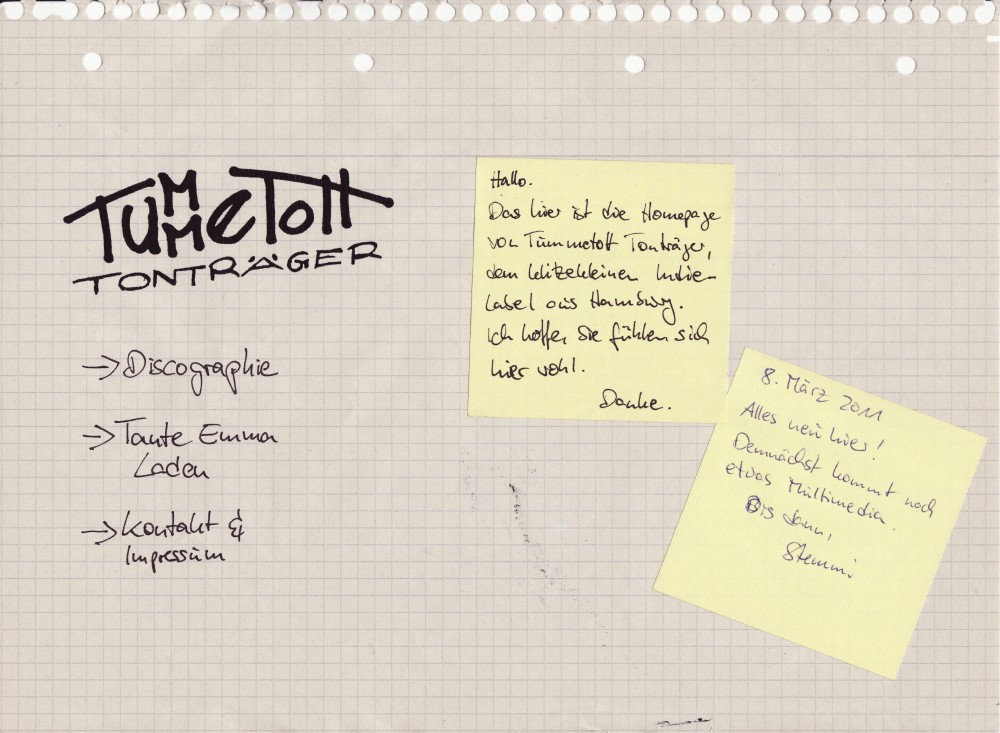 TUMMETOTT
TONTRÄGER
→ Discographie
→ Tante Emma
Laden
→ Kontakt &
Impressum
Hallo.
Das hier ist die Homepage
von Tummetott Tonträger,
dem klitzekleinen Indie-
Label aus Hamburg.
Ich hoffe, Sie fühlen sich
hier wohl.
Danke.
8. März 2011
Alles neu hier!
Demnächst kommt noch
etwas Multimedia.
Bis dann,
Stemmi